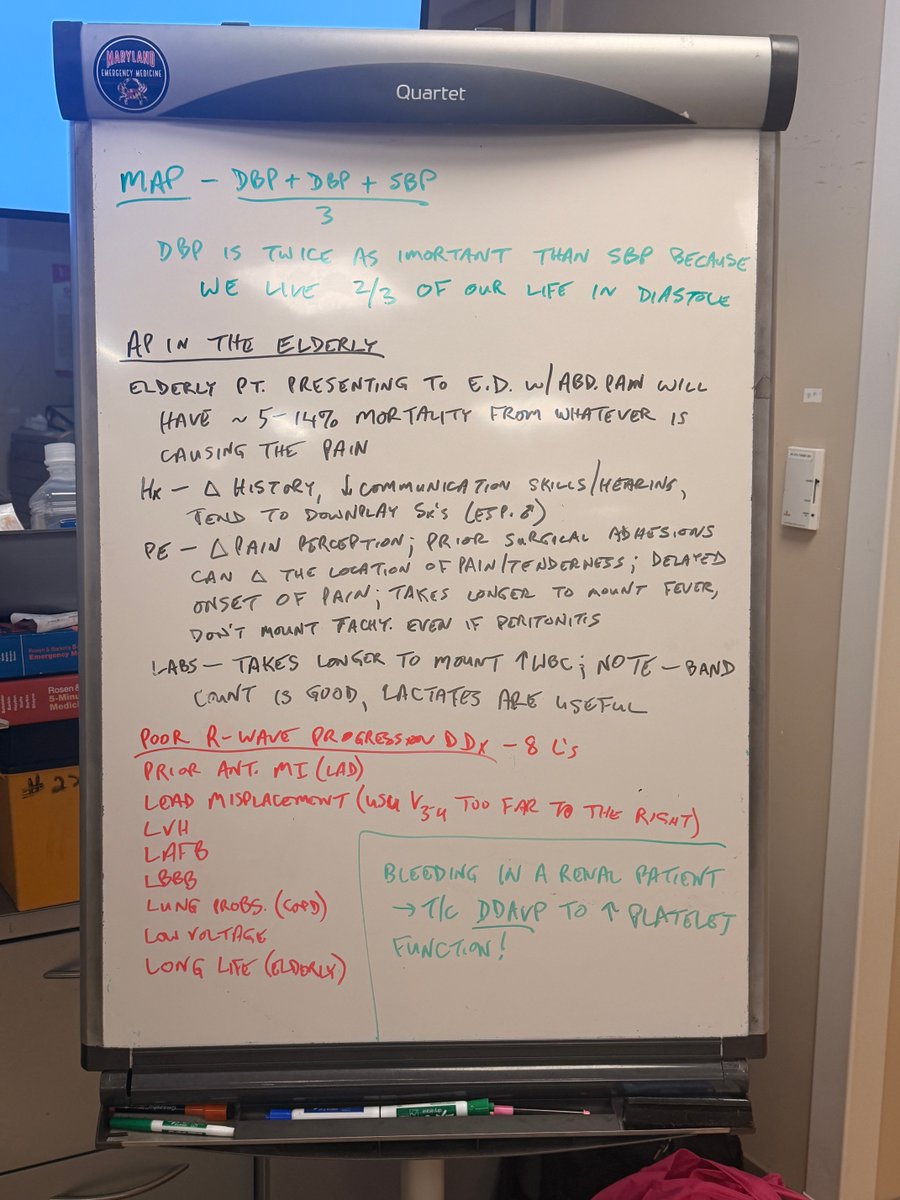 MARYLAND
EMERGENCY MEDICINE
Quartet
MAP - DBP + DBP + SBP
3
DBP IS TWICE AS IMORTANT THAN SBP BECAUSE
WE LIVE 2/3 OF OUR LIFE IN DIASTOLE
AP IN THE ELDERLY
ELDERLY PT. PRESENTING TO E.D. W/ABD. PAIN WILL
HAVE ~ 5-14% MORTALITY FROM WHATEVER IS
CAUSING THE PAIN
Hx - Δ HISTORY, ↓ COMMUNICATION SKILLS/HEARING,
TEND TO DOWNPLAY Sx's (ESP. ♂)
PE - Δ PAIN PERCEPTION; PRIOR SURGICAL ADHESIONS
CAN Δ THE LOCATION OF PAIN/TENDERNESS; DELAYED
ONSET OF PAIN; TAKES LONGER TO MOUNT FEVER,
DON'T MOUNT TACHY. EVEN IF PERITONITIS
LABS - TAKES LONGER TO MOUNT ↑WBC; NOTE - BAND
COUNT IS GOOD, LACTATES ARE USEFUL
POOR R-WAVE PROGRESSION DDx - 8 L's
PRIOR ANT. MI (LAD)
LEAD MISPLACEMENT (usu V3-4 TOO FAR TO THE RIGHT)
LVH
LAFB
LBBB
LUNG PROBS. (COPD)
LOW VOLTAGE
LONG LIFE (ELDERLY)
BLEEDING IN A RENAL PATIENT
→ T/C DDAVP TO ↑ PLATELET
FUNCTION!
Rosen &
5-Minu
Medicin
# 22